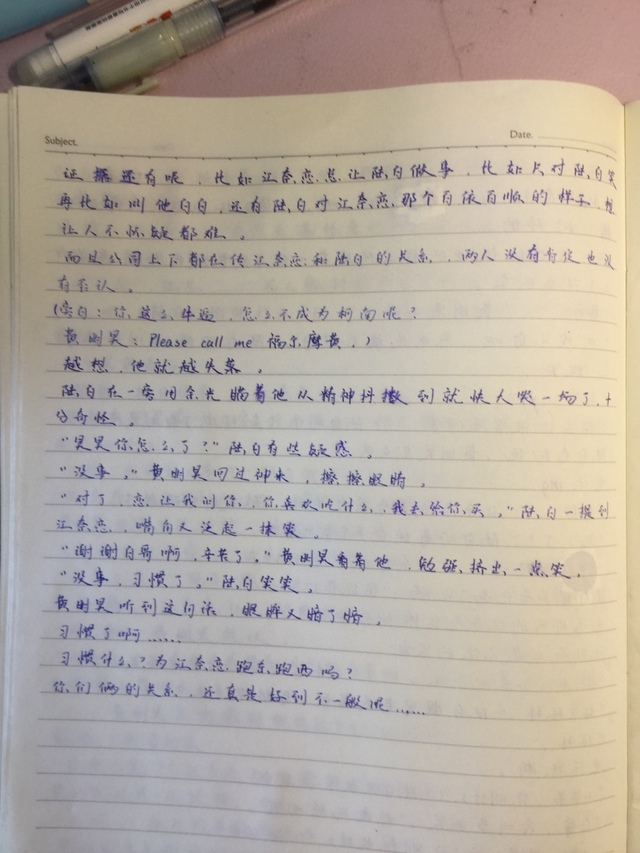 Subject.
Date.
证据还有呢，比如江奈恋总让陆白做事，比如只对陆白笑
再比如叫他白白，还有陆白对江奈恋那个百依百顺的样子，想
让人不怀疑都难。
而且公司上下都在传江奈恋和陆白的关系，两人没有肯定也没
有否认。
(旁白：你这么牛逼，怎么不成为柯南呢？
黄明昊：Please call me 福尔摩黄。)
越想，他就越失落。
陆白在一旁用余光瞄着他从精神抖擞到就快人哭一场了，十
分奇怪。
“昊昊你怎么了？”陆白有些疑惑。
“没事。”黄明昊回过神来，擦擦眼睛。
“对了，恋让我问你，你喜欢吃什么，我去给你买。”陆白一提到
江奈恋，嘴角又泛起一抹笑。
“谢谢白哥啊，辛苦了。”黄明昊看着他，勉强挤出一点笑。
“没事，习惯了。”陆白笑笑。
黄明昊听到这句话，眼眸又暗了暗。
习惯了啊……
习惯什么？为江奈恋跑东跑西吗？
你们俩的关系，还真是好到不一般呢……